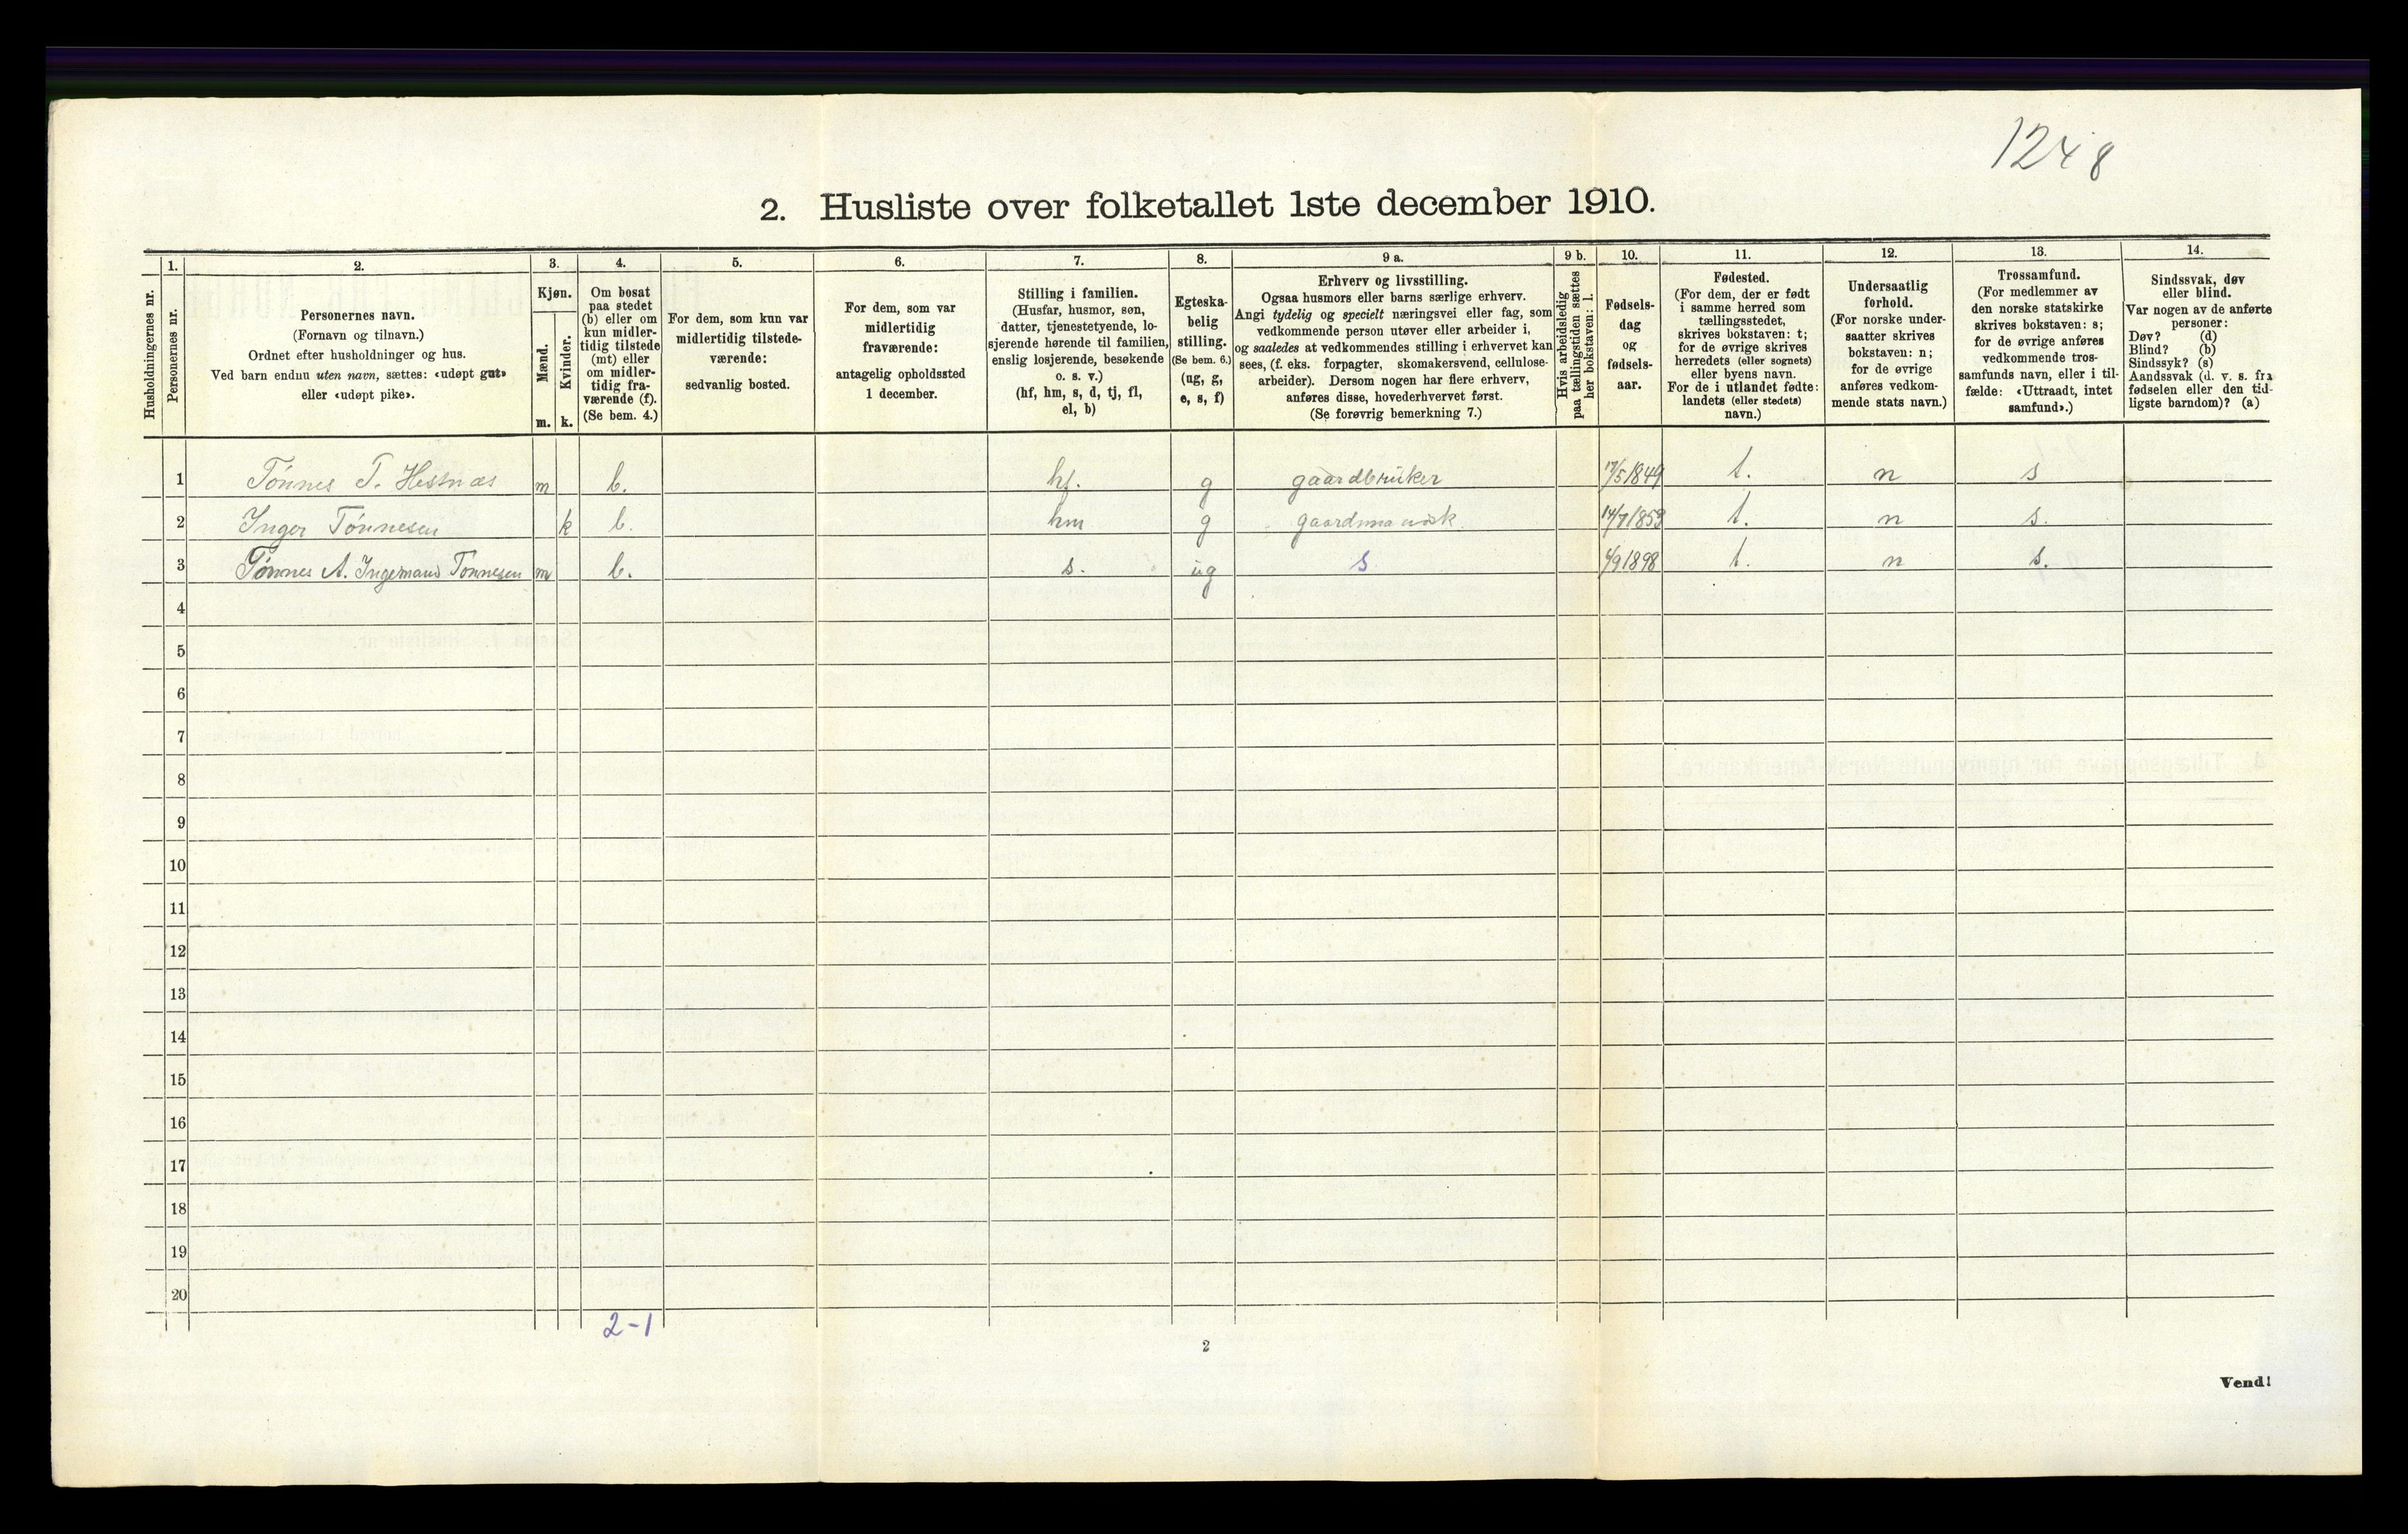 1248
2. Husliste over folketallet 1ste december 1910.
Husholdningernes nr.
1.
Personernes nr.
2.
Personernes navn.
(Fornavn og tilnavn.)
Ordnet efter husholdninger og hus.
Ved barn endnu uten navn, sættes: «udøpt gut»
eller «udøpt pike».
3.
Kjøn.
Mænd.
Kvinder.
m. k.
4.
Om bosat
paa stedet
(b) eller om
kun midler-
tidig tilstede
(mt) eller
om midler-
tidig fra-
værende (f).
(Se bem. 4.)
5.
For dem, som kun var
midlertidig tilstede-
værende:
sedvanlig bosted.
6.
For dem, som var
midlertidig
fraværende:
antagelig opholdssted
1 december.
7.
Stilling i familien.
(Husfar, husmor, søn,
datter, tjenestetyende, lo-
sjerende hørende til familien,
enslig losjerende, besøkende
o. s. v.)
(hf, hm, s, d, tj, fl,
el, b)
8.
Egteska-
belig
stilling.
(Se bem. 6.)
(ug, g,
e, s, f)
9 a.
Erhverv og livsstilling.
Ogsaa husmors eller barns særlige erhverv.
Angi tydelig og specielt næringsvei eller fag, som
vedkommende person utøver eller arbeider i,
og saaledes at vedkommendes stilling i erhvervet kan
sees, (f. eks. forpagter, skomakersvend, cellulose-
arbeider). Dersom nogen har flere erhverv,
anføres disse, hovederhvervet først.
(Se forøvrig bemerkning 7.)
9 b.
Hvis arbeidsledig
paa tællingstiden sættes
her bokstaven: l.
10.
Fødsels-
dag
og
fødsels-
aar.
11.
Fødested.
(For dem, der er født
i samme herred som
tællingsstedet,
skrives bokstaven: t;
for de øvrige skrives
herredets (eller sognets)
eller byens navn.
For de i utlandet fødte:
landets (eller stedets)
navn.)
12.
Undersaatlig
forhold.
(For norske under-
saatter skrives
bokstaven: n;
for de øvrige
anføres vedkom-
mende stats navn.)
13.
Trossamfund.
(For medlemmer av
den norske statskirke
skrives bokstaven: s;
for de øvrige anføres
vedkommende tros-
samfunds navn, eller i til-
fælde: «Uttraadt, intet
samfund».)
14.
Sindssvak, døv
eller blind.
Var nogen av de anførte
personer:
Døv? (d)
Blind? (b)
Sindssyk? (s)
Aandssvak (d. v. s. fra
fødselen eller den tid-
ligste barndom)? (a)
1 Tønnes T. Hesnæs m b. hf. g gaardbruker 17/5 1849 t. n s
2 Inger Tønnesen k b. hm g 14/7 1853 t. n s.
3 Tønnes A. Ingemand Tønnesen m b. s. ug S 4/9 1898 t. n s.
4
5
6
7
8
9
10
11
12
13
14
15
16
17
18
19
20
2-1
2
Vend!